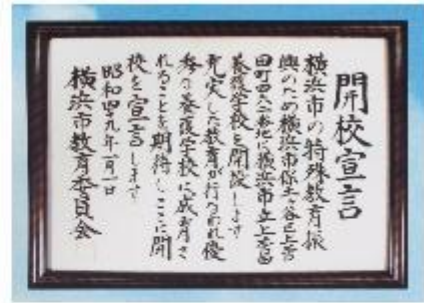 開校宣言
横浜市の特殊教育振
興のため横浜市保土ケ谷区上菅
田町四八二番地に横浜市立上菅田
養護学校を開設します
充実した教育が行なわれ優
秀な養護学校に成長さ
れることを期待しここに開
校を宣言します
昭和四九年一月一日
横浜市教育委員会